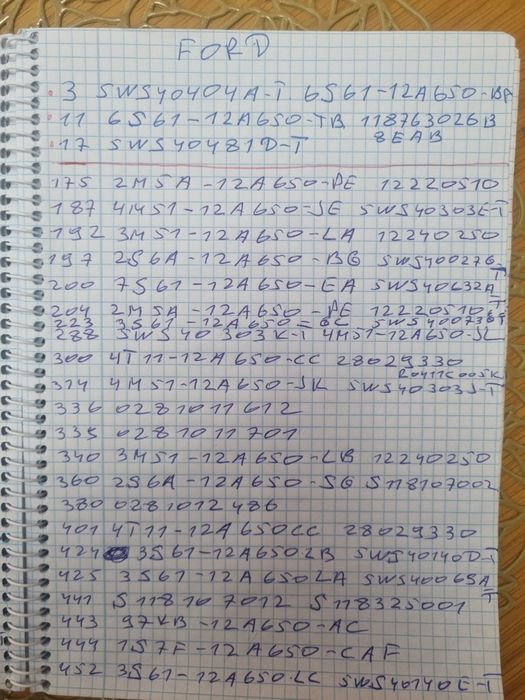 FORD
3 SWS40404A-T. 6S61-12A650-BA
11 6S61-12A650-TB 118763026B
8EAB
17 SWS40481D-T
175 2M5A-12A650-PE 12220510
187 4M51-12A650-JE SWS40303E-T
192 3M51-12A650-LA 12240250
197 2S6A-12A650-BG SWS40027G-T
200 7S61-12A650-EA SWS40632A-T
204 2M5A-12A650-PE 12220510
223 3S61-12A650-GC SWS40073GT
288 SWS40303K-T 4M51-12A650-JL
300 4T11-12A650-CC 28029330
R0411C005K
314 4M51-12A650-JK SWS40303J-T
336 0281011612
335 0281011701
340 3M51-12A650-LB 12240250
360 2S6A-12A650-SG S118107002
380 0281012486
401 4T11-12A650CC 28029330
424 3S61-12A650LB SWS40140D-T
425 3S61-12A650LA SWS40069A-T
441 S118107012 S118325001
443 97KB-12A650-AC
444 1S7F-12A650-CAF
452 3S61-12A650-LC SWS40140E-T